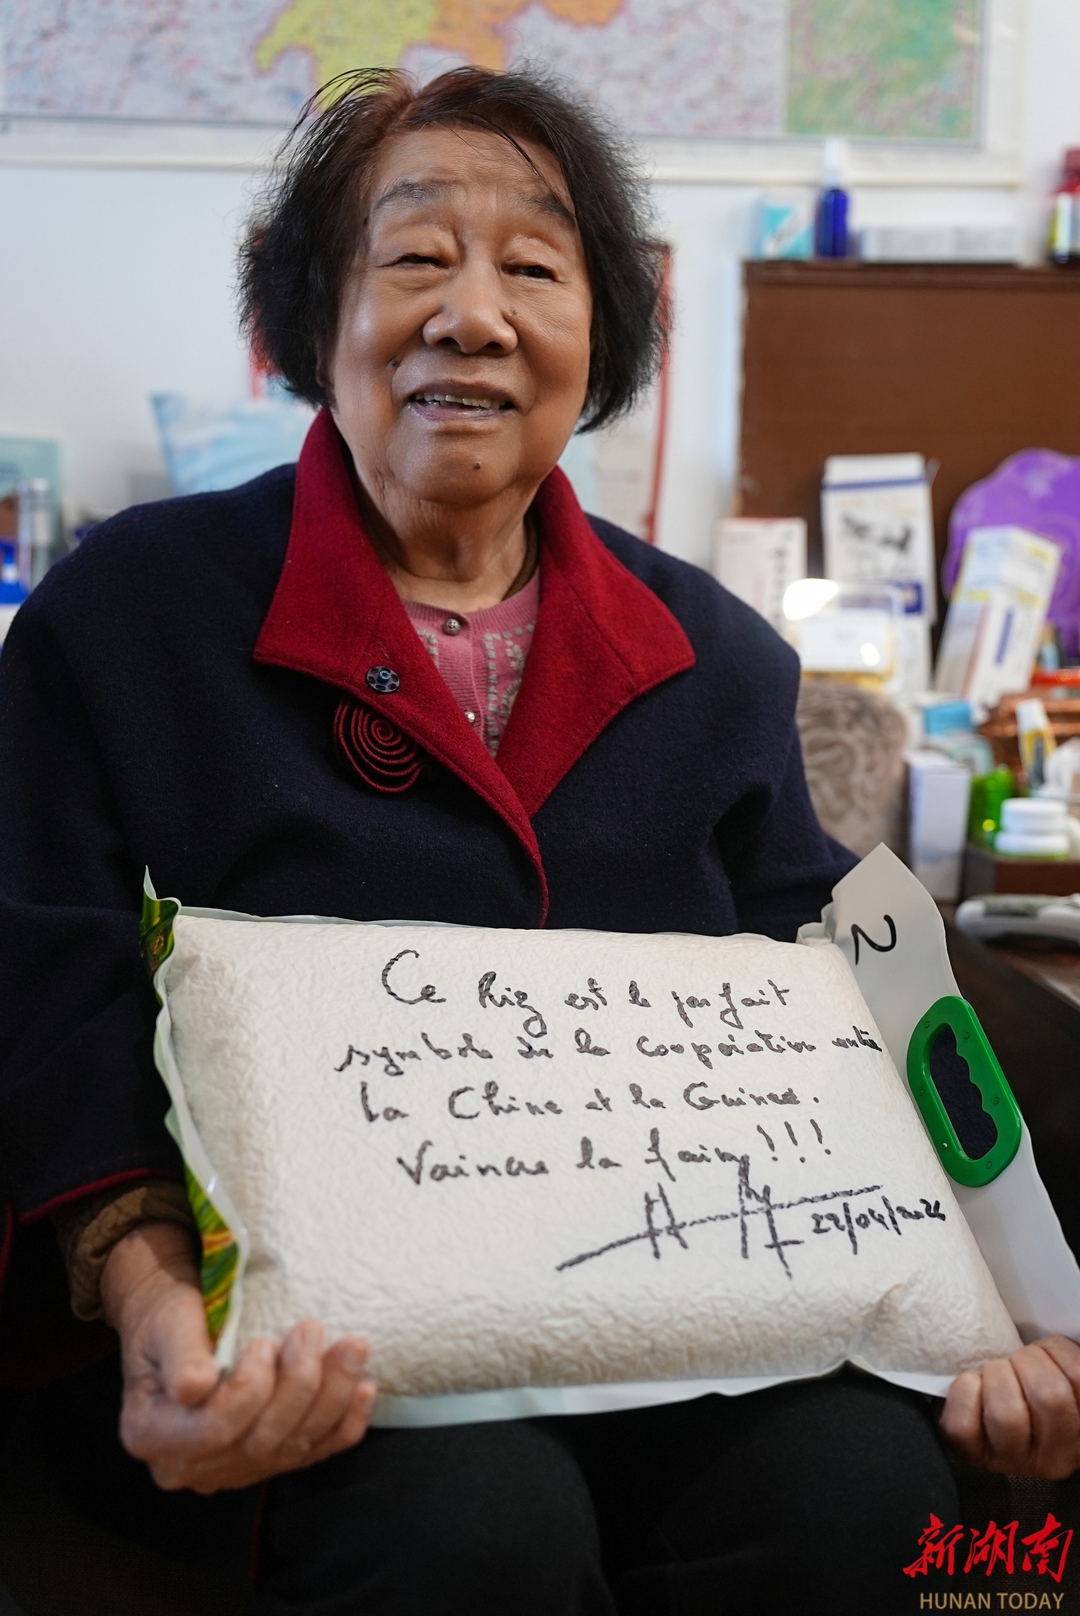 2
Ce Riz est le parfait
symbole de la coopération entre
la Chine et la Guinée.
Vaincre la faim!!!
22/04/2026
新湖南
HUNAN TODAY